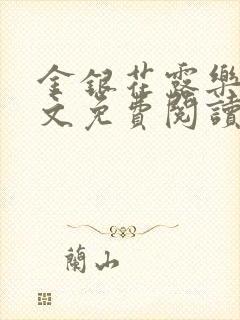 金銀花露樂
文免費閱讀
蘭山